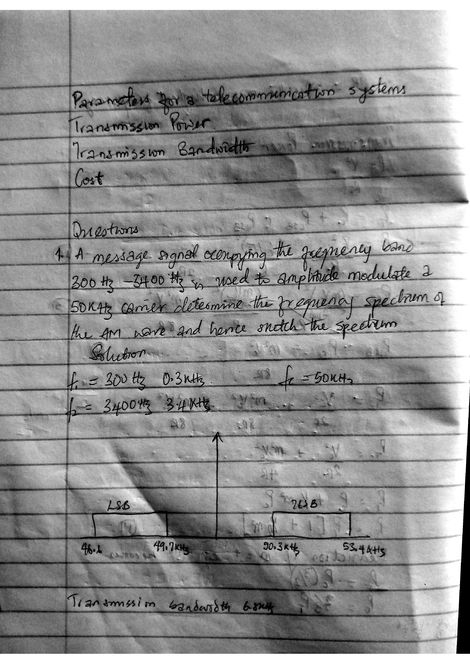 Parameters for a telecommunication systems
Transmission Power
Transmission Bandwidth
Cost
Questions
1. A message signal occupying the frequency band
300 Hz - 3400 Hz is used to amplitude modulate a
50KHz carrier determine the frequency spectrum of
the AM wave and hence sketch the spectrum
Solution
f1 = 300 Hz 0.3KHz fc = 50KHz
f2 = 3400 Hz 3.4 KHz
LSB USB
49.7KHz 50.3KHz 53.4KHz
Transmission bandwidth 6.8KHz